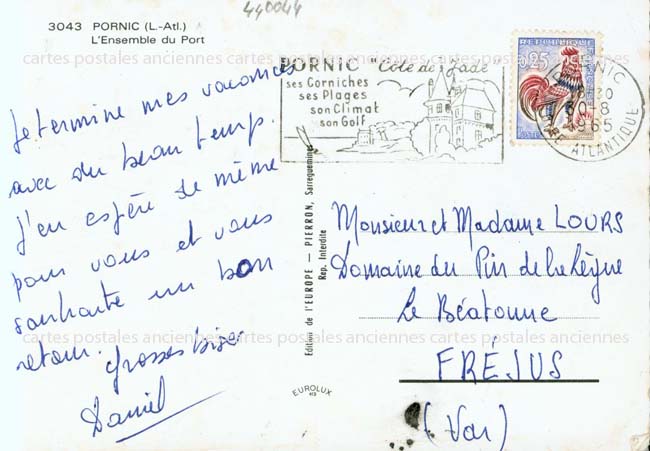 440044
3043 PORNIC (L.-Atl.)
L'Ensemble du Port
cartes postales anciennes cartes postales anciennes cartes postales anciennes
Je termine mes vacances
avec du beau temps.
J'en espère de même
pour vous et vous
souhaite un bon
retour. Grosses bises
Daniel
PORNIC "Côte de Jade"
ses Corniches
ses Plages
son Climat
son Golf
REPUBLIQUE
0,25
PORNIC
30-8
1965
LOIRE ATLANTIQUE
Editions de l'EUROPE — PIERRON, Sarreguemines
Rep. Interdite
EUROLUX
Monsieur et Madame LOURS
Domaine du Pin de la Lègue
Le Béatonne
FRÉJUS
(Var)
cartes postales anciennes cartes postales anciennes cartes postales anciennes